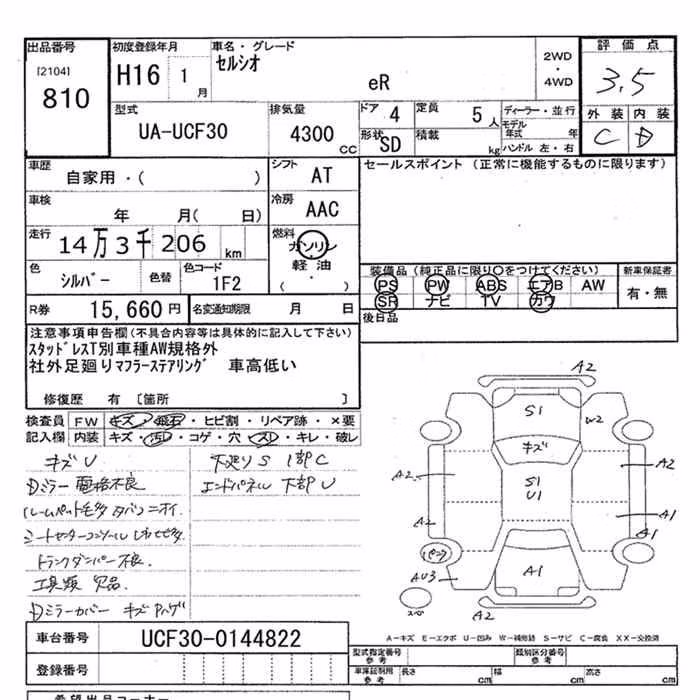 出品番号 初度登録年月 車名・グレード 2WD・4WD 評価点
[2104] 810 H16 1月 セルシオ eR 3.5
型式 排気量 ドア 4 定員 5人 ディーラー・並行 外装 内装
UA-UCF30 4300cc 形状 SD 積載 kg モデル年式 年 ハンドル 左・右 C D
車歴 自家用・( ) シフト AT セールスポイント (正常に機能するものに限ります)
車検 年 月( 日) 冷房 AAC
走行 14万3千206km 燃料 ガソリン・軽油・( )
色 シルバー 色替 色コード 1F2 装備品 (純正品に限り○をつけてください) 新車保証書
PS PW ABS エアB AW 有・無
SR ナビ TV カワ
R券 15,660円 名変通知期限 月 日 後日品
注意事項申告欄(不具合内容等は具体的に記入して下さい)
スタッドレスT別車種AW規格外
社外足廻りマフラーステアリング 車高低い
修復歴 有 [箇所 ]
検査員 FW キズ・飛石・ヒビ割・リペア跡・×要
記入欄 内装 キズ・汚レ・コゲ・穴・スレ・キレ・破レ
キズU 下廻りS 1部C
Dミラー電格不良 エンドパネル下部U
ルームパット毛多 タバコニオイ
トランクダンパー不良.
工具類 欠品.
Dミラーカバー キズ
A2
S1
W2
キズ
A2 S1 A2
U1
A2 A1
パンク
AU3 A1
スペ A2
A-キズ E-エクボ U-凹み W-補修跡 S-サビ C-腐食 XX-交換済
車台番号 UCF30-0144822
型式指定番号 参考 類別区分番号 参考
登録番号 車庫証明用 参考 長さ cm 幅 cm 高さ cm
希望出品コーナー